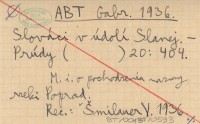 ABT Gabr. 1936.
Slováci v údolí Slanej. –
Prúdy ( ) 20: 404.
M. i. o pochodzenia nazvy
rieki Poprad.
Rec.: Šmilauer V. 1936